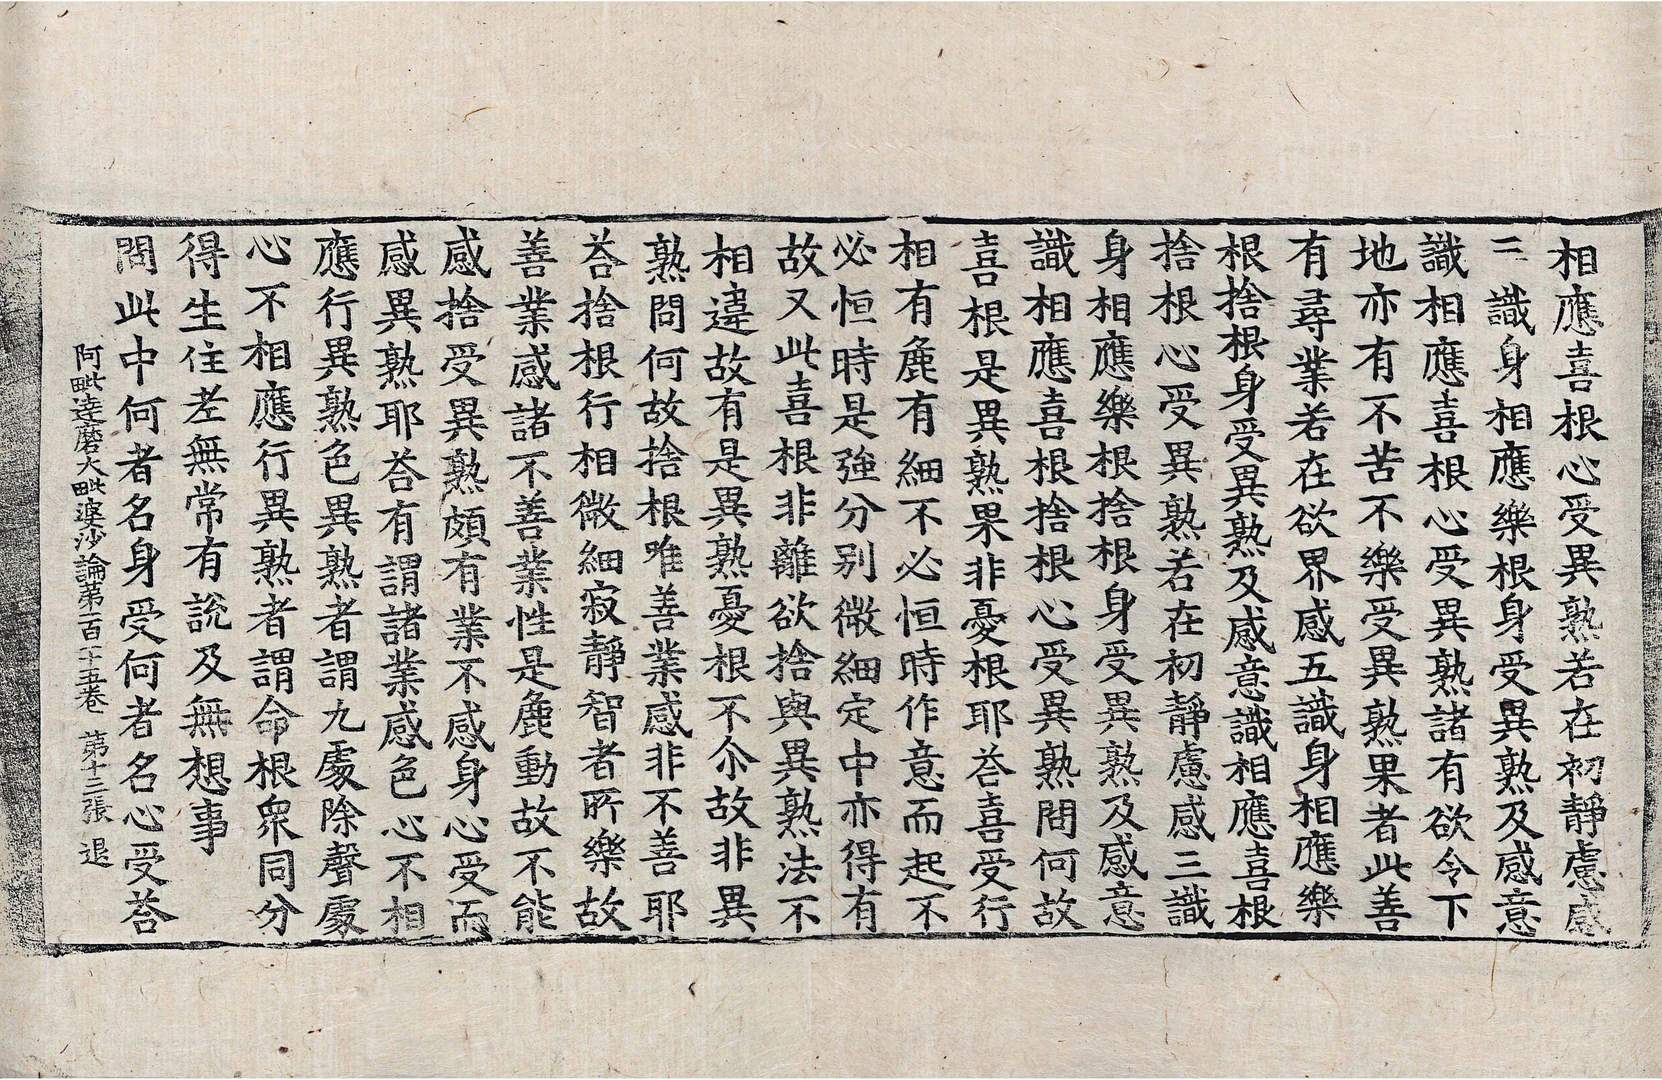 相應喜根心受異熟若在初靜慮感
三識身相應樂根身受異熟及感意
識相應喜根心受異熟諸有欲令下
地亦有不苦不樂受異熟果者此善
有尋業若在欲界感五識身相應樂
根捨根身受異熟及感意識相應喜根
捨根心受異熟若在初靜慮感三識
身相應樂根捨根身受異熟及感意
識相應喜根捨根心受異熟問何故
喜根是異熟果非憂根耶荅喜受行
相有麁有細不必恒時作意而起不
必恒時是強分別微細定中亦得有
故又此喜根非離欲捨與異熟法不
相違故有是異熟憂根不尒故非異
熟問何故捨根唯善業感非不善耶
荅捨根行相微細寂靜智者所樂故
善業感諸不善業性是麁動故不能
感捨受異熟頗有業不感身心受而
感異熟耶荅有謂諸業感色心不相
應行異熟色異熟者謂九處除聲處
心不相應行異熟者謂命根衆同分
得生住老無常有說及無想事
問此中何者名身受何者名心受荅
阿毗達磨大毗婆沙論第一百十五卷 第十三張 退